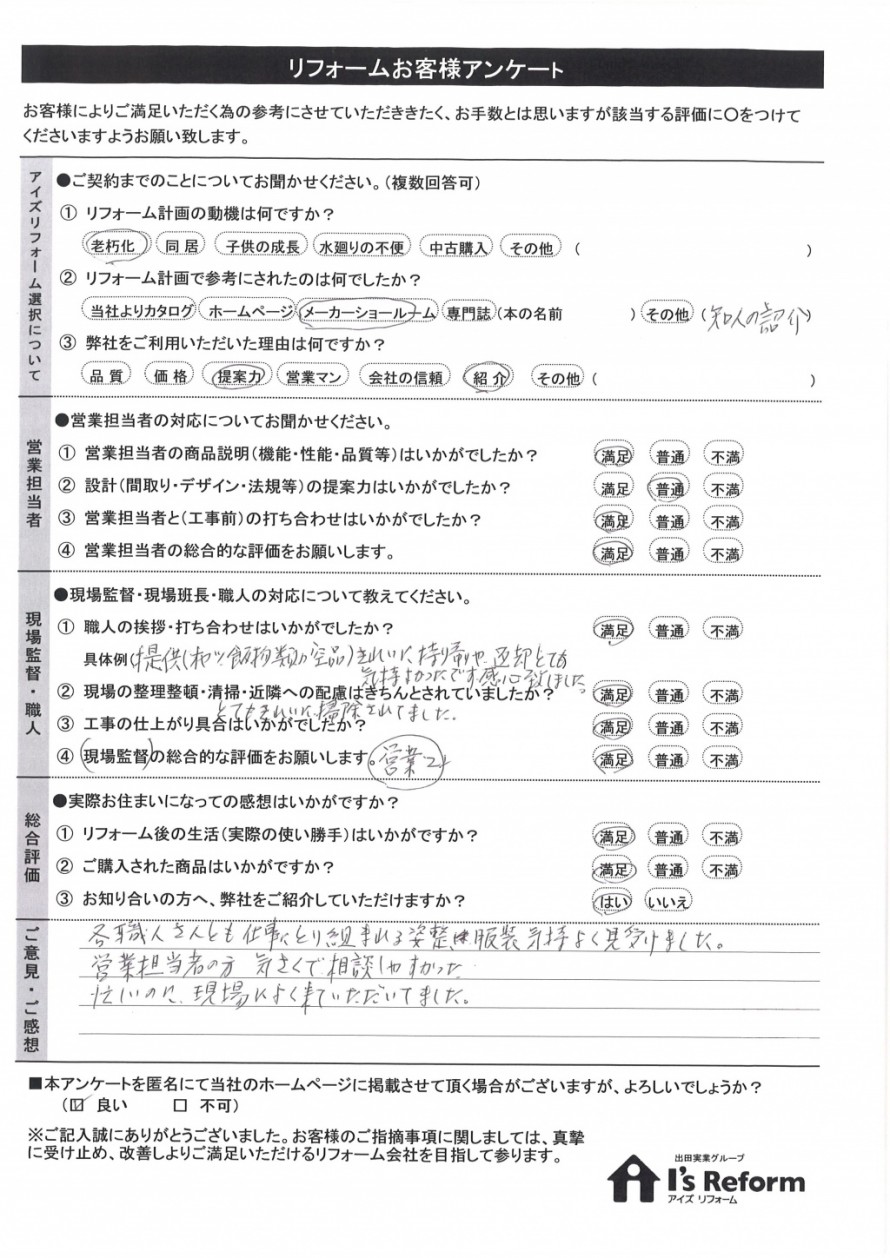 リフォームお客様アンケート
お客様によりご満足いただく為の参考にさせていただききたく、お手数とは思いますが該当する評価に〇をつけて
くださいますようお願い致します。
アイズリフォーム選択について
●ご契約までのことについてお聞かせください。(複数回答可)
① リフォーム計画の動機は何ですか？
老朽化 同居 子供の成長 水廻りの不便 中古購入 その他 ( )
② リフォーム計画で参考にされたのは何でしたか？
当社よりカタログ ホームページ メーカーショールーム 専門誌(本の名前 ) その他 (知人の紹介)
③ 弊社をご利用いただいた理由は何ですか？
品質 価格 提案力 営業マン 会社の信頼 紹介 その他 ( )
営業担当者
●営業担当者の対応についてお聞かせください。
① 営業担当者の商品説明(機能・性能・品質等)はいかがでしたか？ 満足 普通 不満
② 設計(間取り・デザイン・法規等)の提案力はいかがでしたか？ 満足 普通 不満
③ 営業担当者と(工事前)の打ち合わせはいかがでしたか？ 満足 普通 不満
④ 営業担当者の総合的な評価をお願いします。 満足 普通 不満
現場監督・職人
●現場監督・現場班長・職人の対応について教えてください。
① 職人の挨拶・打ち合わせはいかがでしたか？ 満足 普通 不満
具体例(提供 飲物類の空品)きれいに持り帰りや、返却とても
気持よかったです感心致しました。
② 現場の整理整頓・清掃・近隣への配慮はきちんとされていましたか？ 満足 普通 不満
とてもきれいに掃除されてました。
③ 工事の仕上がり具合はいかがでしたか？ 満足 普通 不満
④ (現場監督)の総合的な評価をお願いします。 営業 満足 普通 不満
総合評価
●実際お住まいになっての感想はいかがですか？
① リフォーム後の生活(実際の使い勝手)はいかがですか？ 満足 普通 不満
② ご購入された商品はいかがですか？ 満足 普通 不満
③ お知り合いの方へ、弊社をご紹介していただけますか？ はい いいえ
ご意見・ご感想
各職人さんとも仕事にとり組まれる姿整 服装気持よく見受けました。
営業担当者の方 気さくで相談しやすかった
忙しいのに、現場によく来ていただいてました。
■本アンケートを匿名にて当社のホームページに掲載させて頂く場合がございますが、よろしいでしょうか？
(☑ 良い □ 不可)
※ご記入誠にありがとうございました。お客様のご指摘事項に関しましては、真摯
に受け止め、改善しよりご満足いただけるリフォーム会社を目指して参ります。
出田実業グループ
I's Reform
アイズ リフォーム